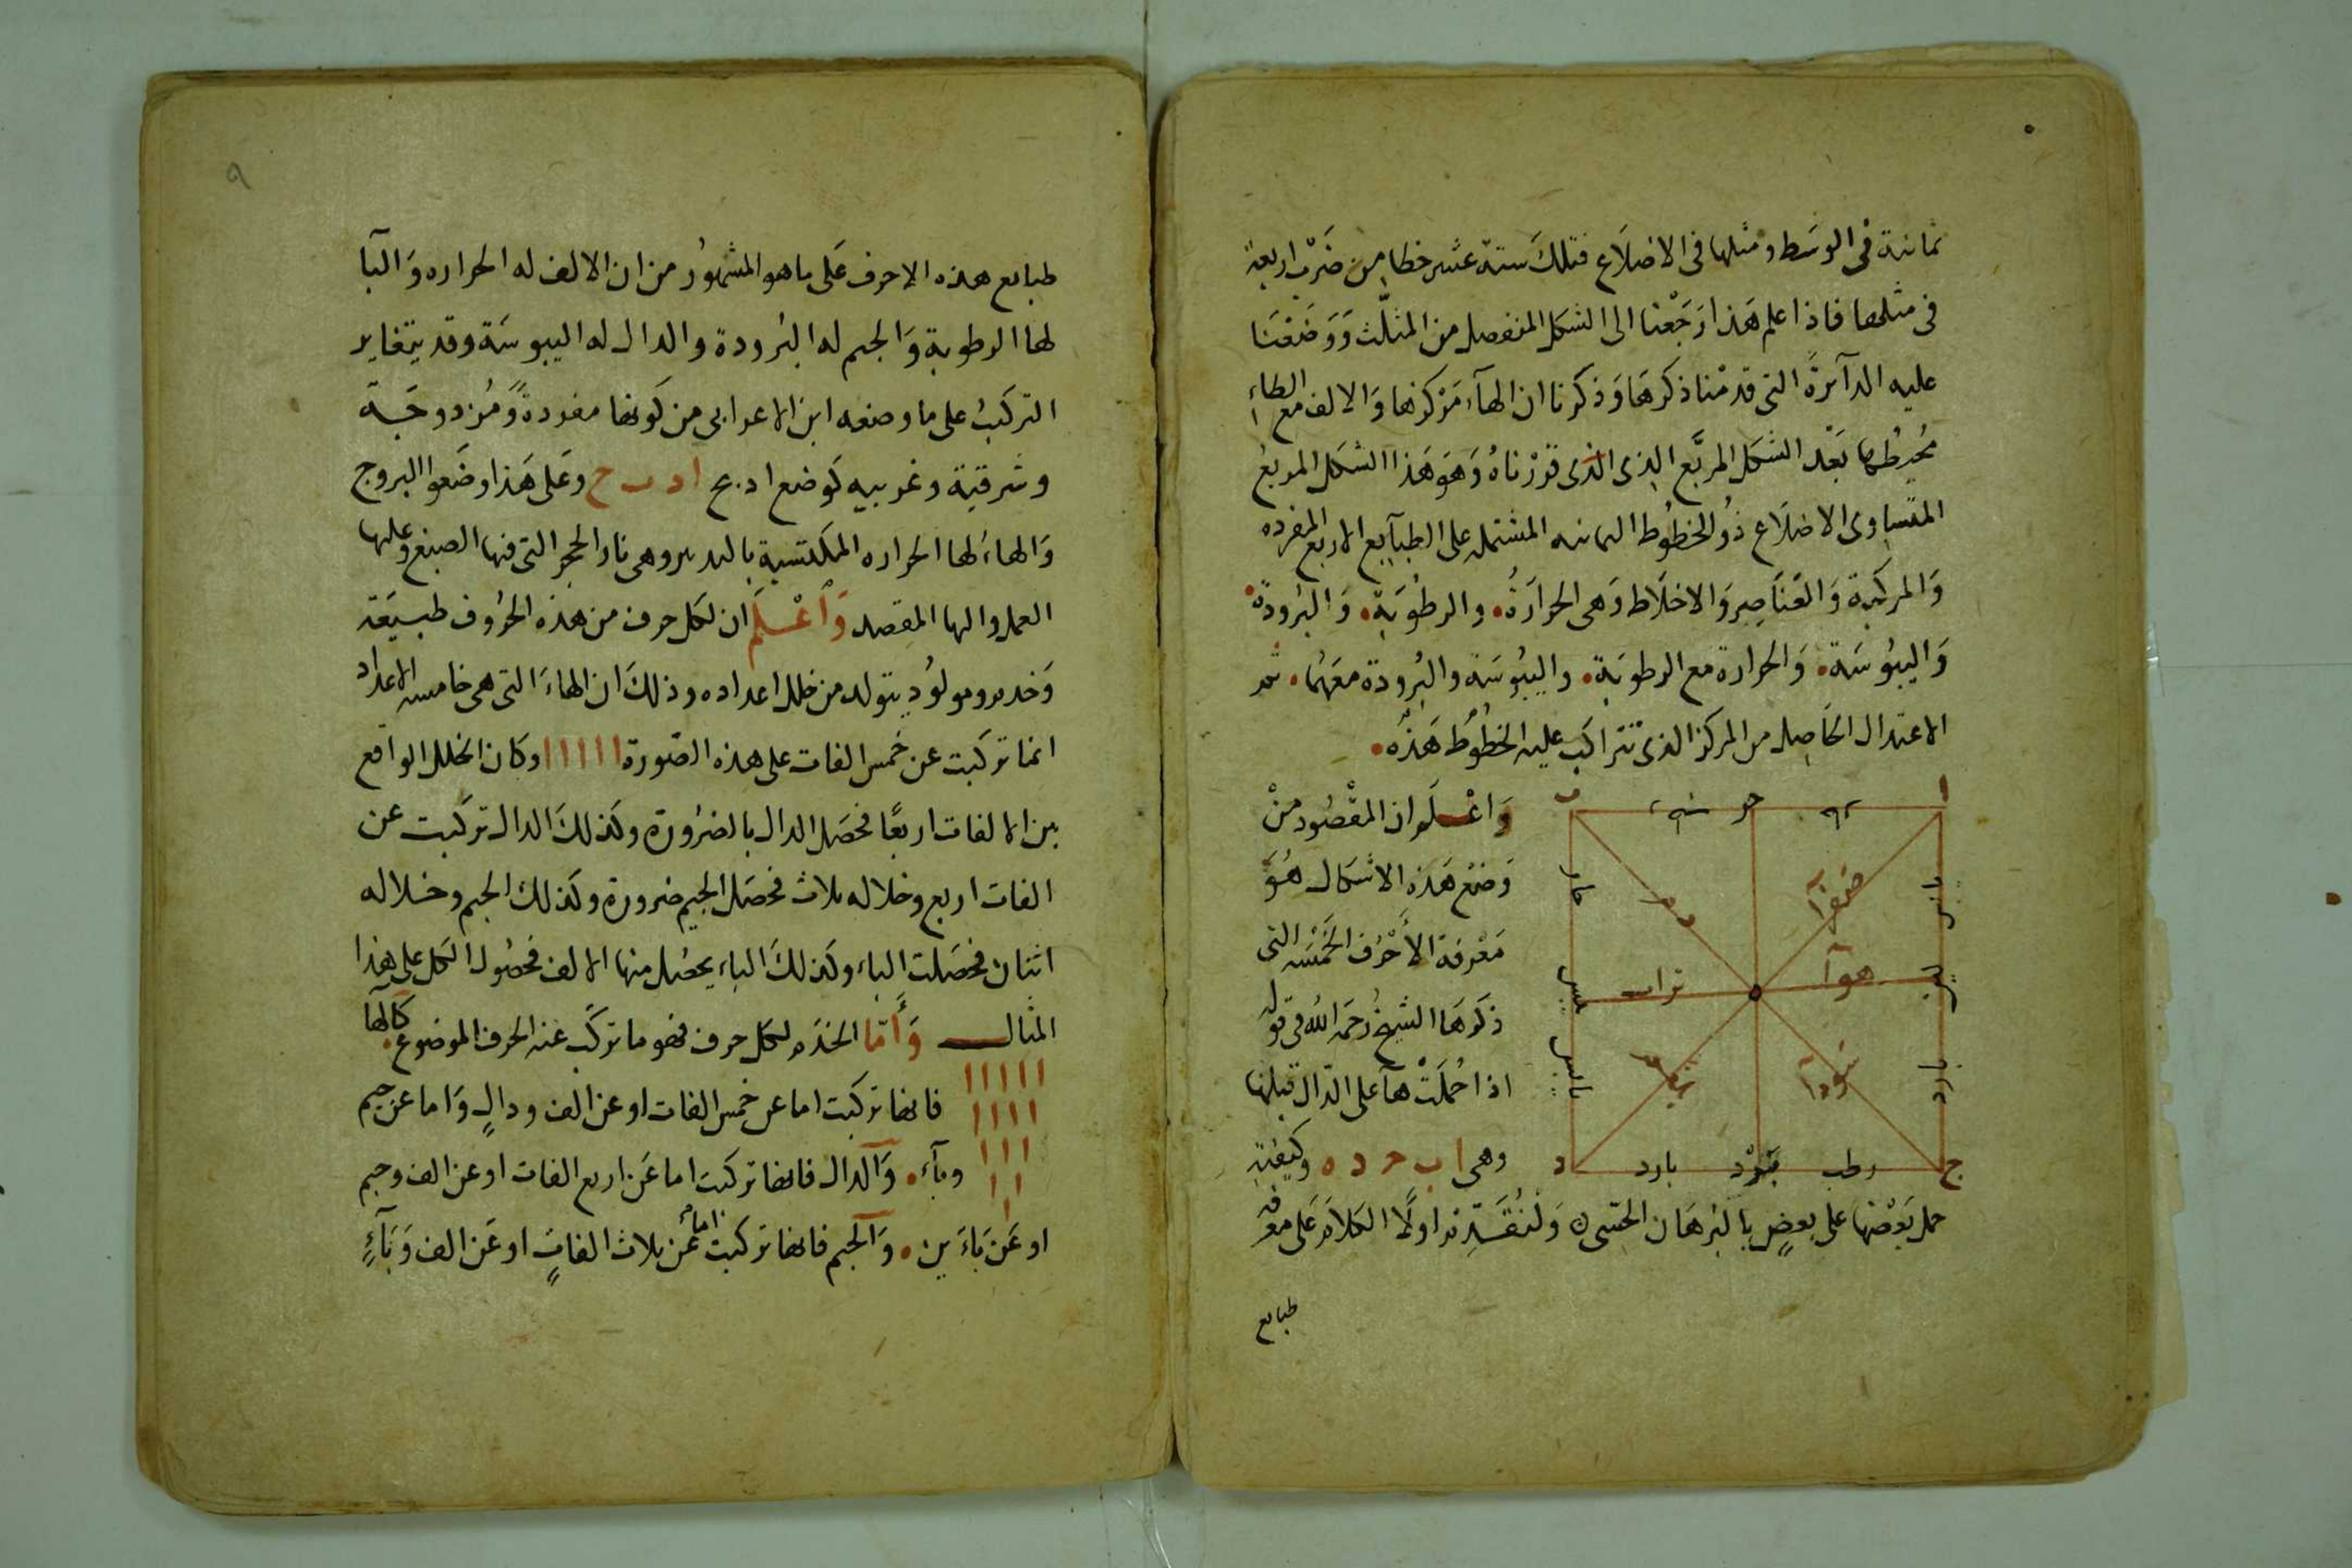 ثمانية فى الوسَط ومثلها فى الاضلاَع فتلكَ ستة عشر خطا من ضَرْب اربعة
فى مثلها فاذا علم هَذا رَجَعْنا الى الشكل المنفصل من المثلّث وَوَضَعْنَا
عليه الدآئرةَ التى قدمْنا ذكرهَا وَذكرنا ان الهآء مَرْكزها وَالالف مع الطاء
مُحيطها بَعْد الشكل المربَّع الذى الذى قرّرناهُ وَهوَ هَذا الشكل المربع
المتساوى الاضلاَع ذُو الخطُوط الثمانيه المشتمله على الطبآيع الاربع المفرده
وَالمركَبة وَالعَناصِر وَالاخلاَط وَهى الحرارَةُ والرطُوبَة وَالبرُودة
وَاليبُوسَة وَالحرارة مع الرطوبَة واليبُوسَة والبُرودة معَهُما ثم
الاعتدال الحَاصِل من المركز الذى تتراكَب عليه الخطُوط هَذهُ
وَاعْلَم ان المقْصُود منْ
وَضع هَذه الاشكال هُوَ
مَعْرفة الأَحْرُف الخَمْسَه التى
ذكرهَا الشيخُ رَحمَه اللّه فى قوله
اذا حُملَتْ هآ على الدّال قبلها
وهى ا ب ح د ه وكيفية
ا
ب
حر
يابس
صفرآ
دم
هوآ
تراب
بلغم
سَودآ
بارد
يابس
ج
رطب
بَرْد
بارد
د
حمل بَعْضها على بعضٍ بالبُرهَان الحسّى وَلنُقَدّم اولًا الكلاَم عَلى معرفة
طبايع
٩
طبايع هذه الاحرف عَلى ما هو المشهوُر من ان الالف له الحراره وَالبآ
لها الرطوبة وَالجيم له البرُودة والدال له اليبوسَة وقد يتغاير
التركيبُ على ما وضعه ابن الاعرابى من كَونها مفردةً وَمُزدوجَة
وشرقية وغربيه كَوضع ا د ب ج ا د ب ح وعَلى هَذا وضَعوا البروج
وَالهاء لها الحراره المكتسبة بالتدبير وهى نار الحجر التى فيها الصبغ وعليها
العمل واليها المقصد وَاعْلَم ان لكل حرف من هَذه الحرُوف طبيعَة
وَخدم ومولوُد يتولد من خلل اعداده وذلكَ ان الهاءَ التى هى خامس الاعداد
انما تركبت عن خَمس الفات على هذه الصّورة ا ا ا ا ا وكان الخلل الواقع
بين الالفات اربعًا فحصَل الدال بالضرُورة وكذلكَ الدال تركبت عن
الفات اربع وخلاله ثلاث فحصَل الجيم ضرورة وكذلكَ الجيم وخلاله
اثنان فحصَلت الباء وكذلكَ الباء يحصُل منها الالف فحصُول الكل على هذا
المثال وَأَمّا الخدَم لكل حرف فهو ما تركَب عنه الحرف الموضوع كالها
ا ا ا ا ا
ا ا ا ا
ا ا ا
ا ا
ا
فانها تركبت اما عن خمس الفات او عن الف ودالٍ وَاما عن جيم
وبآء وَالدال فانها تركبت اما عَن اربع الفات او عن الف وجيم
او عَن بَاءَين وَالجيم فانها تركبت اما عن ثلاث الفاتٍ او عَن الف وَبَآءٍ